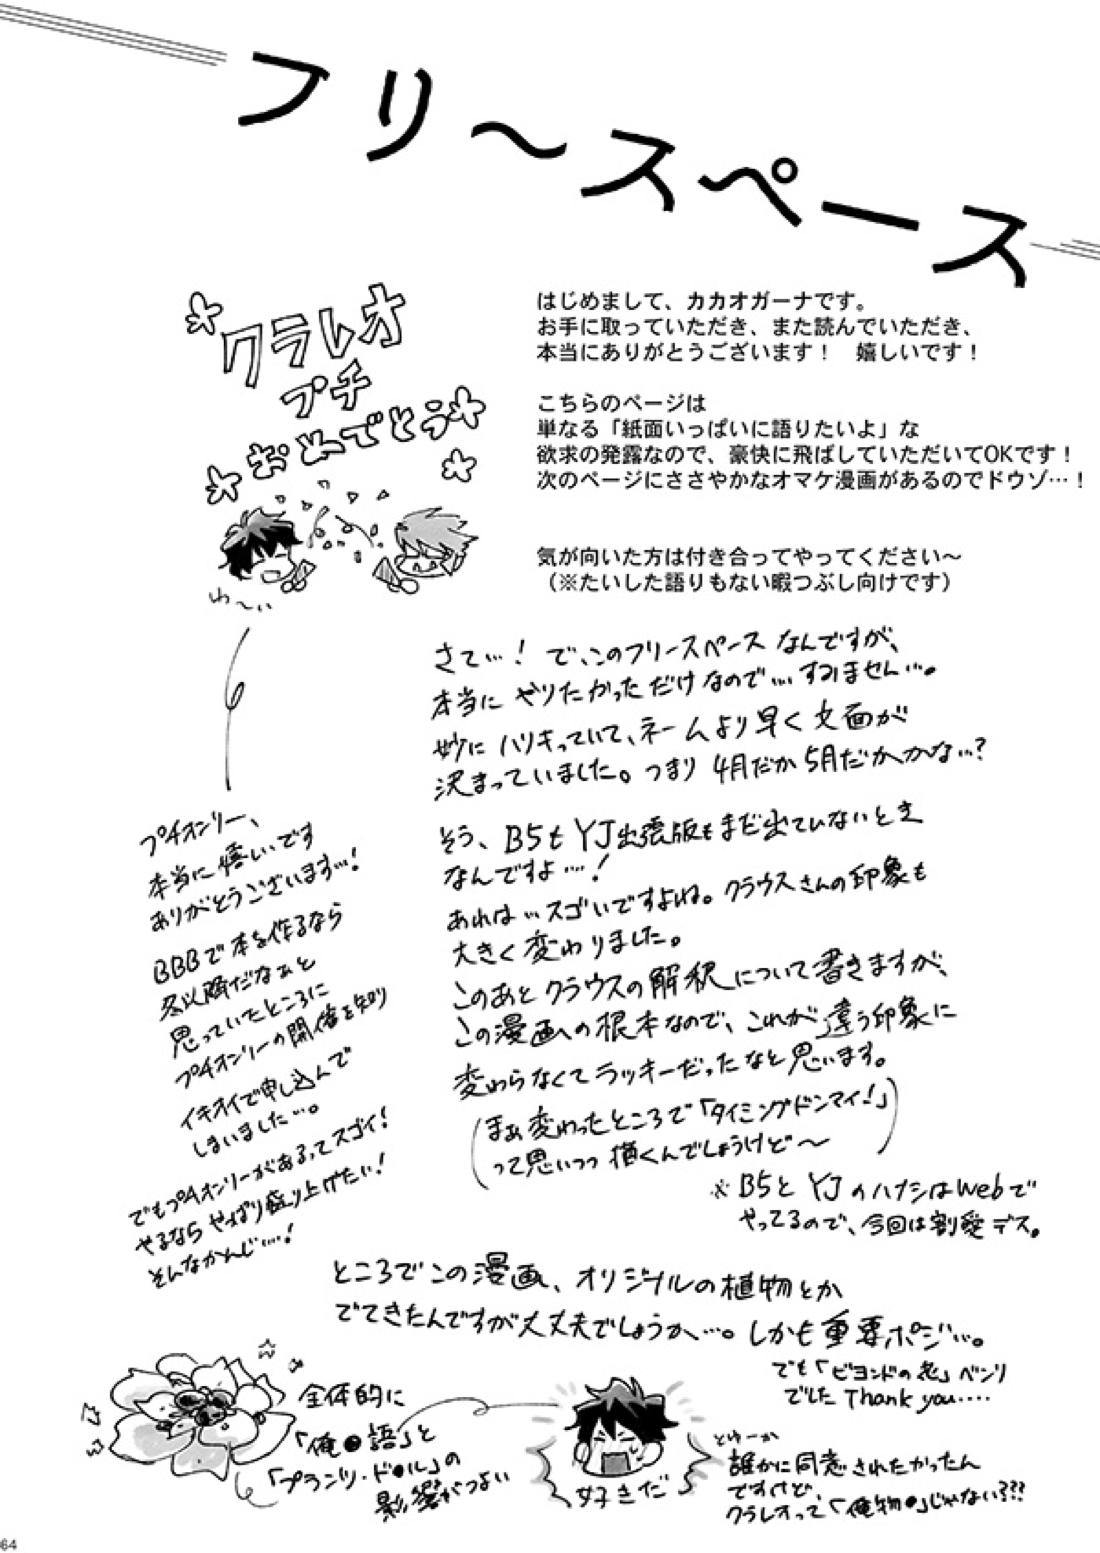 フリ〜スペース
クラレオ
プチ
おめでとう
わ〜い
はじめまして、カカオガーナです。
お手に取っていただき、また読んでいただき、
本当にありがとうございます！　嬉しいです！
こちらのページは
単なる「紙面いっぱいに語りたいよ」な
欲求の発露なので、豪快に飛ばしていただいてOKです！
次のページにささやかなオマケ漫画があるのでドウゾ…！
気が向いた方は付き合ってやってください〜
（※たいした語りもない暇つぶし向けです）
さて…！ で、このフリースペースなんですが、
本当に やりたかっただけなので…、すみません…。
妙に ハリキっていて、ネームより早く文面が
決まっていました。つまり 4月だか5月だかかな…？
そう、B5も YJ出張版もまだ出ていないとき
なんですよ…！
あれは…スゴいですよね。クラウスさんの印象も
大きく変わりました。
このあと クラウスの解釈について書きますが、
この漫画への根本なので、これが違う印象に
変わらなくてラッキーだったなと思います。
（まぁ変わったところで「タイミングドンマイ！」
って思いつつ描くんでしょうけど〜）
※ B5と YJのハナシはwebで
やってるので、今回は割愛デス。
プチオンリー、
本当に嬉しいです
ありがとうございます…！
BBBで本を作るなら
冬以降だなぁと
思っていたところに
プチオンリーの開催を知り
イキオイで申し込んで
しまいました…。
でもプチオンリーがあるってスゴイ！
やるならやっぱり盛り上げたい！
そんなかんじ…！
ところでこの漫画、オリジナルの植物とか
でてきたんですが大丈夫でしょうか…。しかも重要ポジ…。
でも「ビヨンドの〜」ベンリ
でした Thank you‥‥
全体的に
「俺●語」と
「プランツ・ド●ル」の
影響がつよい
好きだ
とゆーか
誰かに同意されたかったん
ですけど、
クラレオって「俺物●」じゃない？？？
64